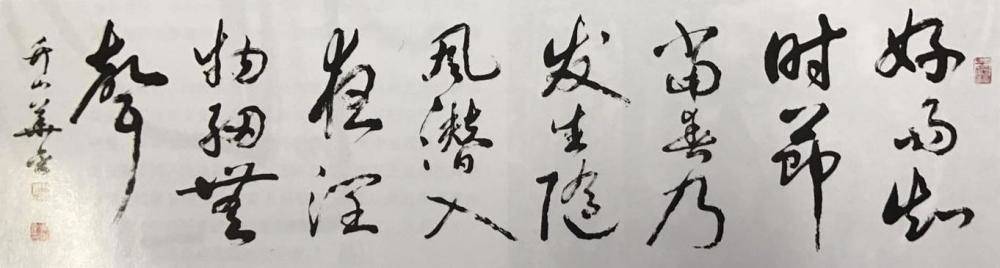 好雨知
时节
当春乃
发生随
风潜入
夜润
物细无
声